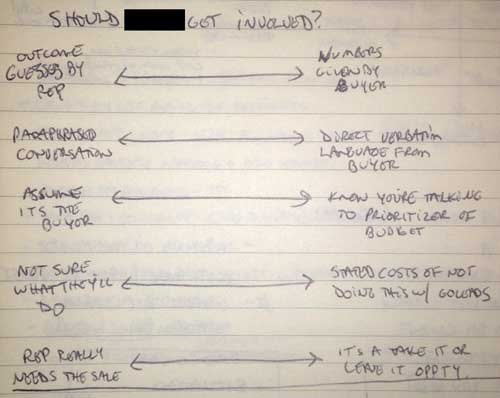 SHOULD GET INVOLVED?
OUTCOME
GUESSES BY
REP
NUMBERS
GIVEN BY
BUYER
PARAPHRASED
CONVERSATION
DIRECT VERBATIM
LANGUAGE FROM
BUYER
ASSUME
ITS THE
BUYOR
KNOW YOU'RE TALKING
TO PRIORITIZER OF
BUDGET
NOT SURE
WHAT THEY'LL
DO
STATED COSTS OF NOT
DOING THIS W/
REP REALLY
NEEDS THE SALE
IT'S A TAKE IT OR
LEAVE IT OPPTY.